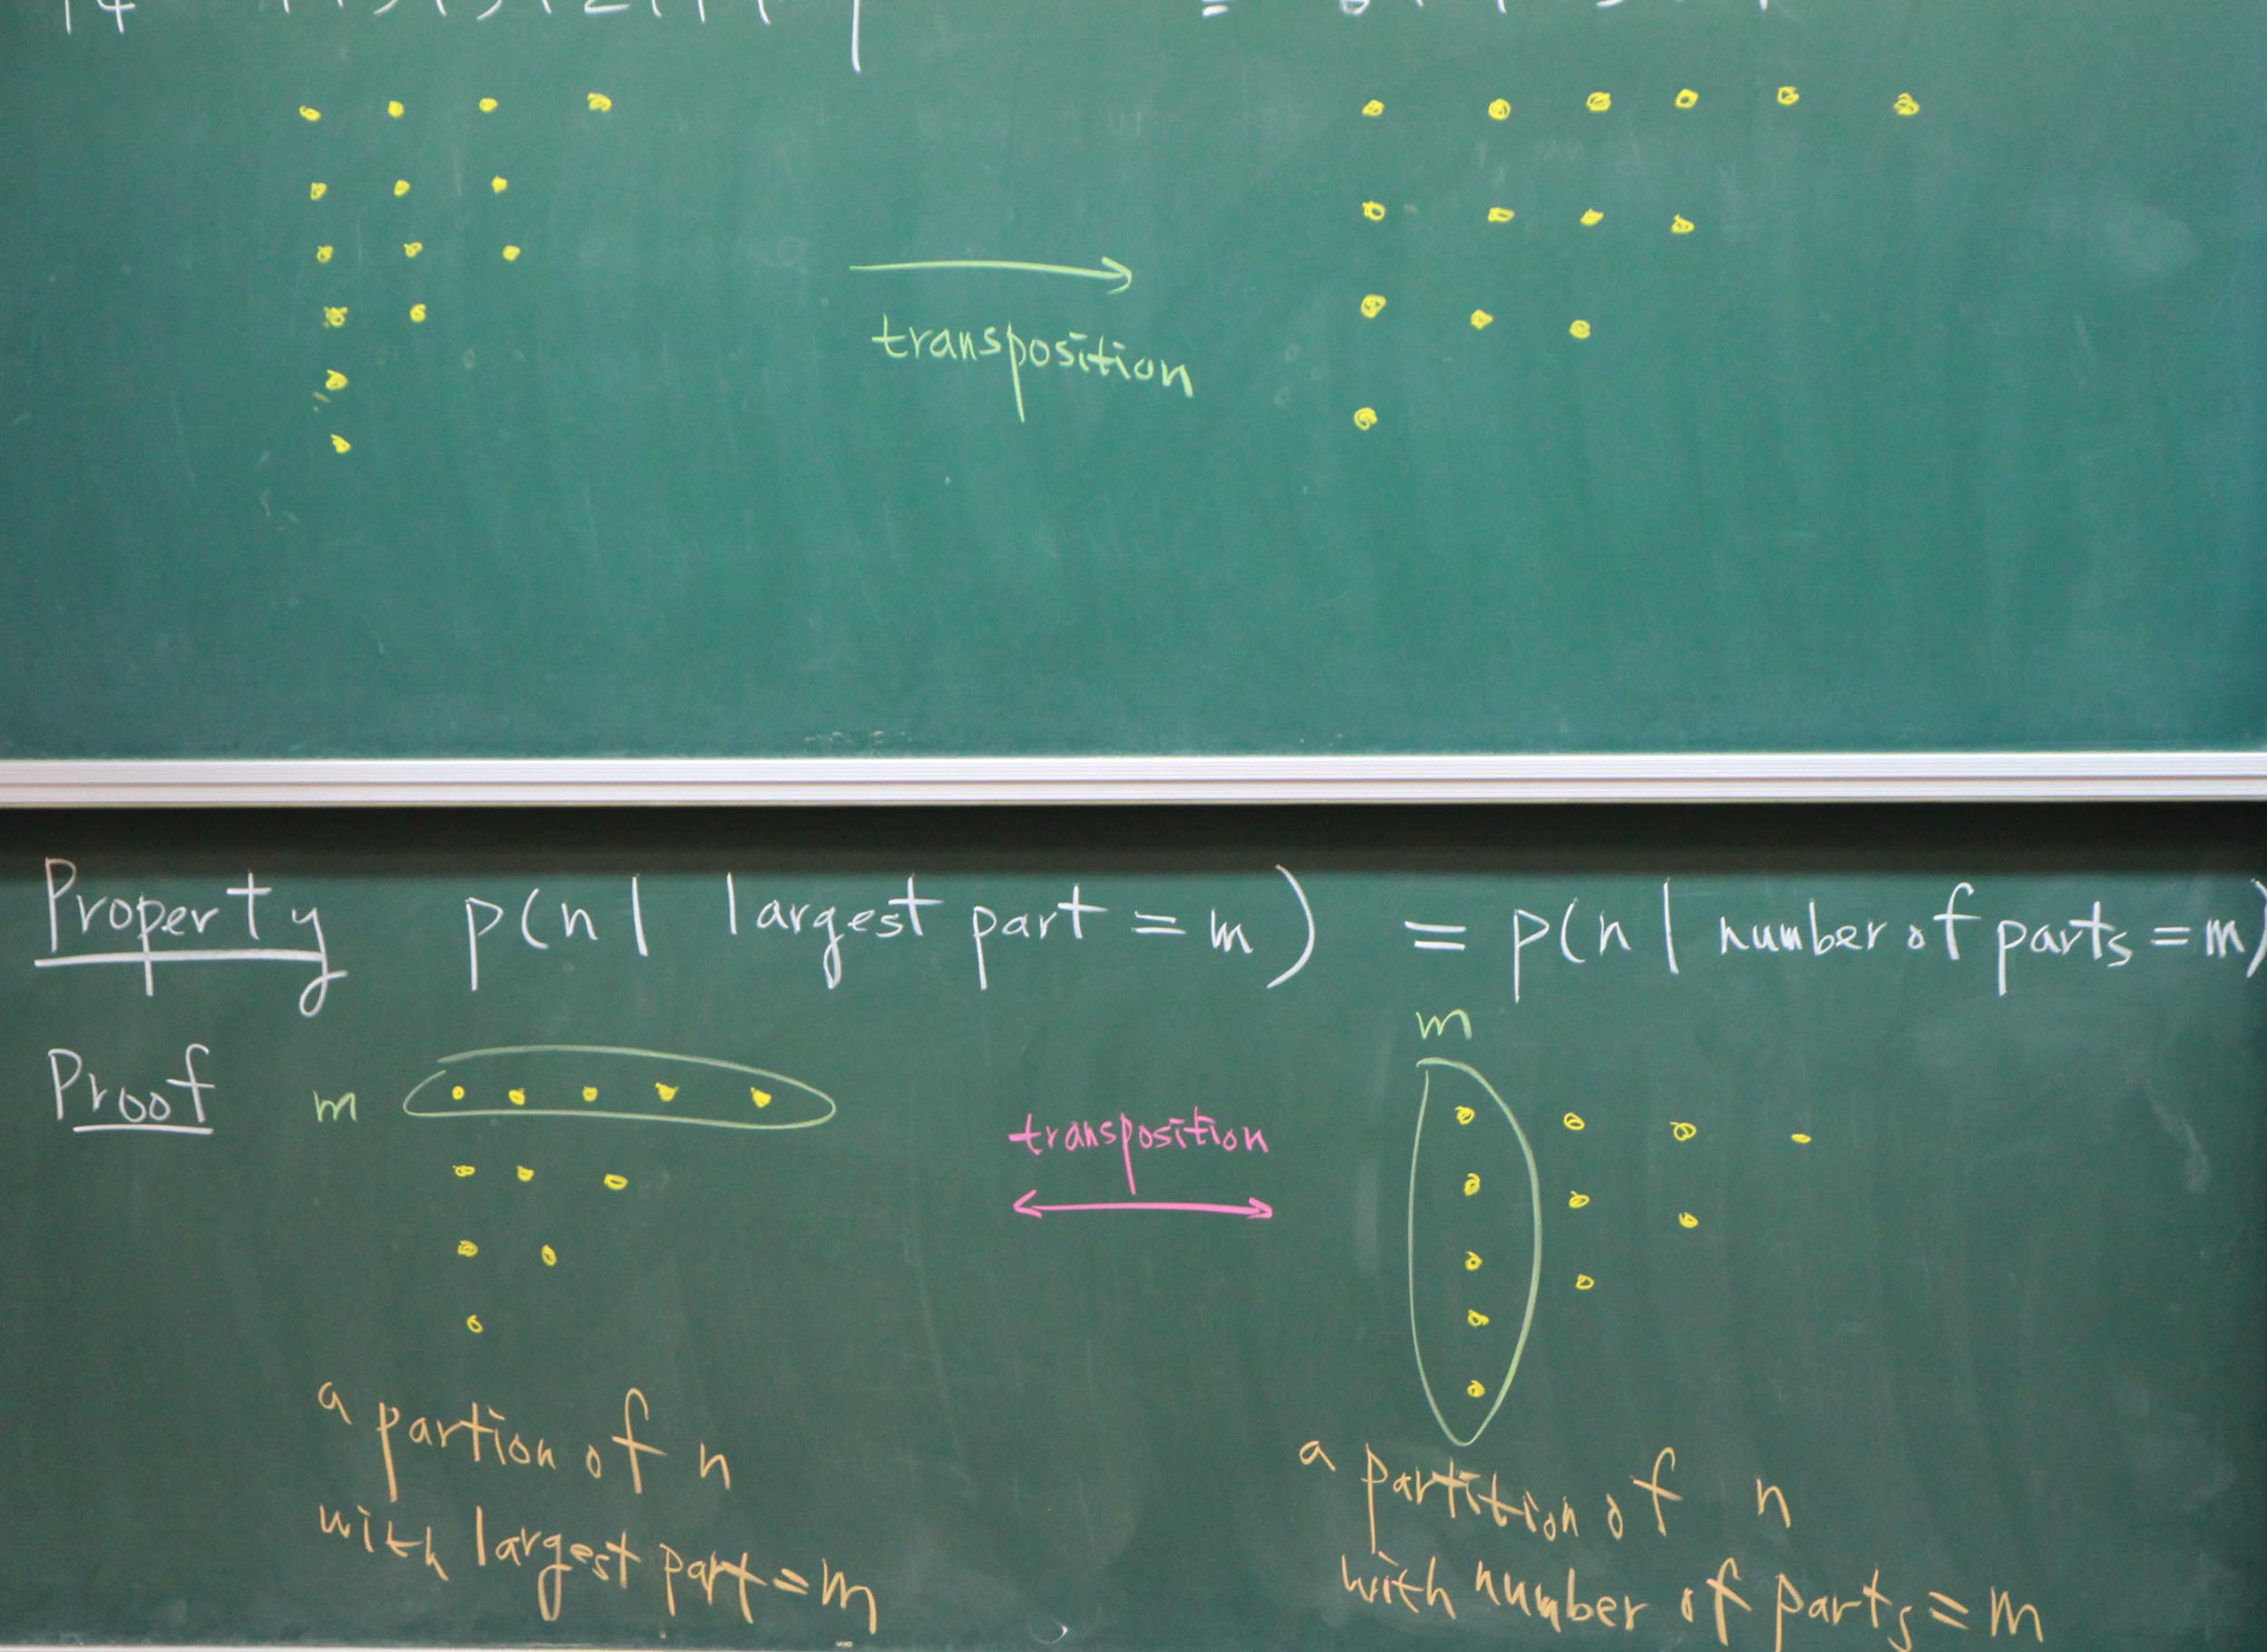 transposition
Property p(n | largest part = m) = p(n | number of parts = m)
m
Proof m
transposition
a partion of n
with largest part = m
a partition of n
with number of parts = m